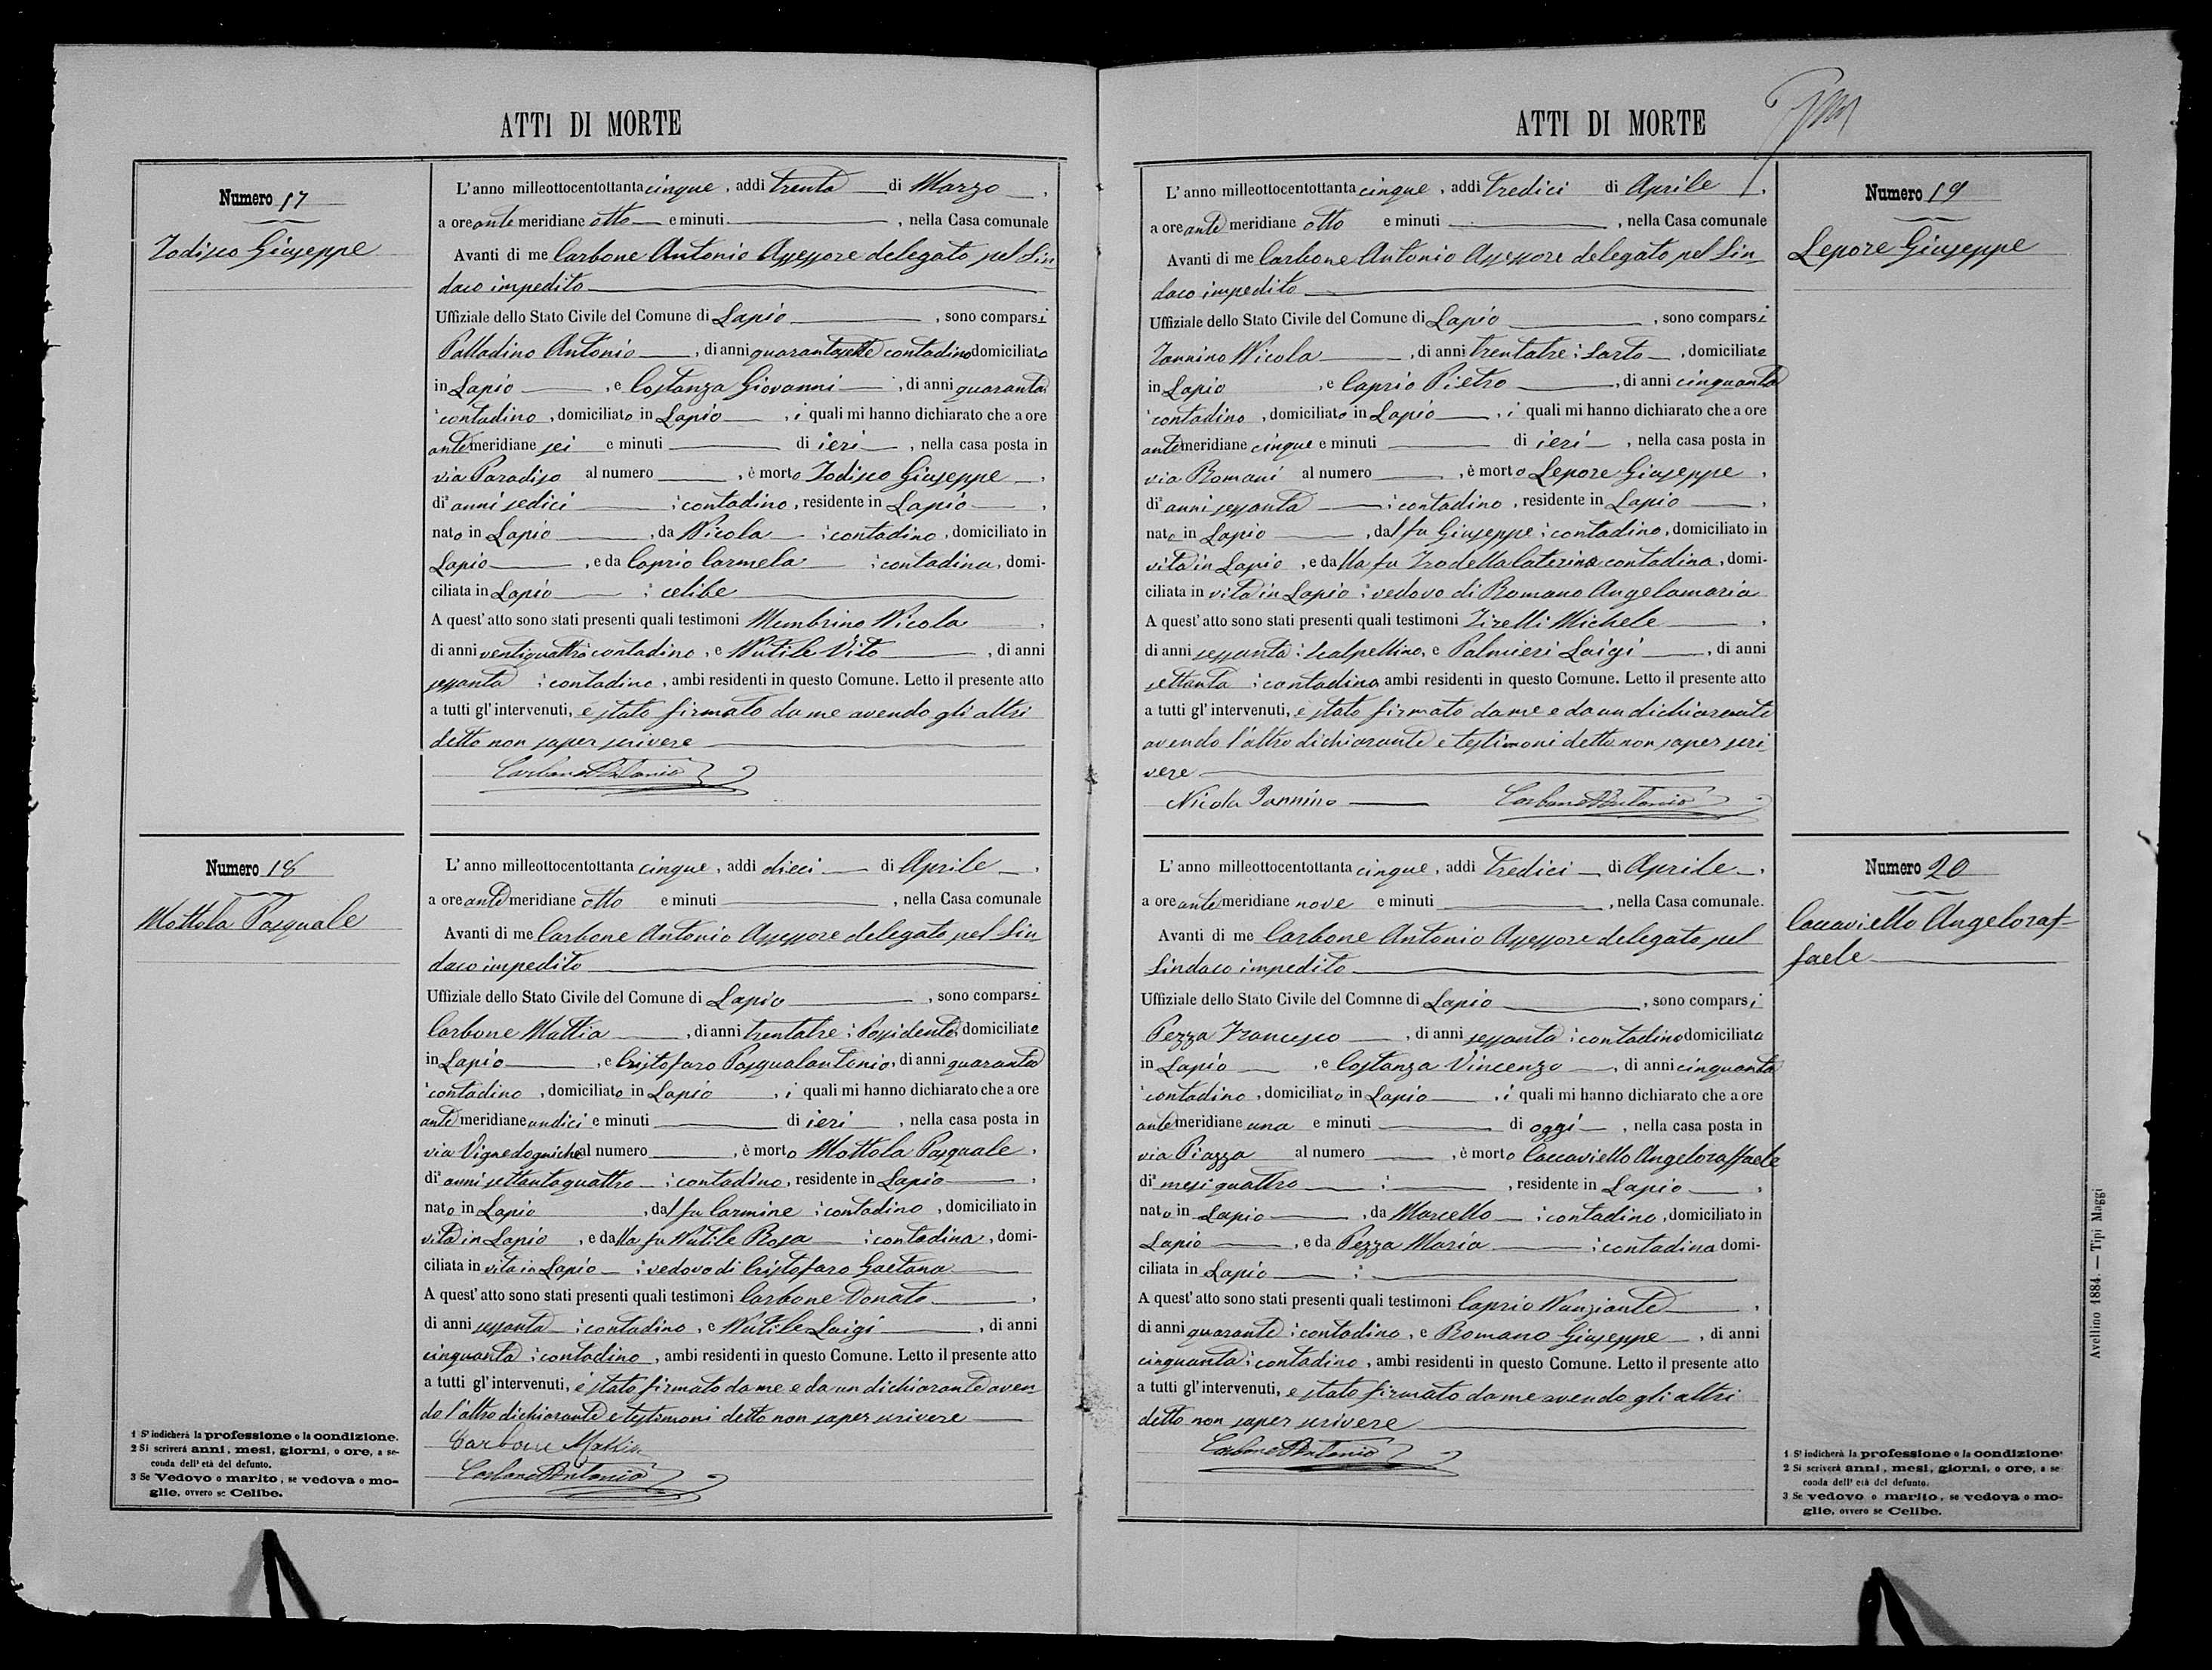 ATTI DI MORTE
Numero 17
Iodisco Giuseppe
L'anno milleottocentottanta cinque, addi trenta di Marzo,
a ore ante meridiane otto e minuti, nella Casa comunale
Avanti di me Carbone Antonio Assessore delegato pel Sin
daco impedito
Uffiziale dello Stato Civile del Comune di Lapio, sono comparsi
Palladino Antonio, di anni quarantasette contadino domiciliato
in Lapio, e Costanza Giovanni, di anni quaranta
contadino, domiciliato in Lapio, i quali mi hanno dichiarato che a ore
antemeridiane sei e minuti di ieri, nella casa posta in
via Paradiso al numero, è morto Iodisco Giuseppe,
di anni sedici contadino, residente in Lapio,
nato in Lapio, da Nicola contadino, domiciliato in
Lapio, e da Caprio Carmela contadina, domi-
ciliata in Lapio celibe
A quest'atto sono stati presenti quali testimoni Membrino Nicola,
di anni ventiquattro contadino, e Nutile Vito, di anni
sessanta contadino, ambi residenti in questo Comune. Letto il presente atto
a tutti gl'intervenuti, è stato firmato da me avendo gli altri
detto non saper scrivere
Carbone Antonio
Numero 18
Mottola Pasquale
L'anno milleottocentottanta cinque, addi dieci di Aprile,
a ore antemeridiane otto e minuti, nella Casa comunale
Avanti di me Carbone Antonio Assessore delegato pel Sin
daco impedito
Uffiziale dello Stato Civile del Comune di Lapio, sono comparsi
Carbone Mattia, di anni trentatre Possidente, domiciliato
in Lapio, e Cristofaro Pasqualantonio, di anni quaranta
contadino, domiciliato in Lapio, i quali mi hanno dichiarato che a ore
antemeridiane undici e minuti di ieri, nella casa posta in
via al numero, è morto Mottola Pasquale,
di anni settantaquattro contadino, residente in Lapio,
nato in Lapio, dal fu Carmine contadino, domiciliato in
vita in Lapio, e dalla fu Nutile Rosa contadina, domi-
ciliata in vita in Lapio vedovo di Cristofaro Gaetana
A quest'atto sono stati presenti quali testimoni Carbone Donato,
di anni sessanta contadino, e Nutile Luigi, di anni
cinquanta contadino, ambi residenti in questo Comune. Letto il presente atto
a tutti gl'intervenuti, è stato firmato da me e da un dichiarante aven
do l'altro dichiarante e testimoni detto non saper scrivere
Carbone Mattia
Carbone Antonio
1 S'indicherà la professione o la condizione.
2 Si scriverà anni, mesi, giorni, o ore, a se-
conda dell'età del defunto.
3 Se Vedovo o marito, se vedova o mo-
glie, ovvero se Celibe.
ATTI DI MORTE
Numero 19
Lepore Giuseppe
L'anno milleottocentottanta cinque, addi tredici di Aprile,
a ore ante meridiane otto e minuti, nella Casa comunale
Avanti di me Carbone Antonio Assessore delegato pel Sin
daco impedito
Uffiziale dello Stato Civile del Comune di Lapio, sono comparsi
Iannino Nicola, di anni trentatre Sarto, domiciliato
in Lapio, e Caprio Pietro, di anni cinquanta
contadino, domiciliato in Lapio, i quali mi hanno dichiarato che a ore
antemeridiane cinque e minuti di ieri, nella casa posta in
via Romani al numero, è morto Lepore Giuseppe,
di anni sessanta contadino, residente in Lapio,
nato in Lapio, dal fu Giuseppe contadino, domiciliato in
vita in Lapio, e dalla fu Caterina contadina, domi-
ciliata in vita in Lapio vedovo di Romano Angelamaria
A quest'atto sono stati presenti quali testimoni Zirelli Michele,
di anni sessanta Scalpellino, e Palmieri Luigi, di anni
settanta contadino ambi residenti in questo Comune. Letto il presente atto
a tutti gl'intervenuti, è stato firmato da me e da un dichiarante
avendo l'altro dichiarante e testimoni detto non saper scri
vere
Nicola Iannino Carbone Antonio
Numero 20
Caccaviello Angeloraf-
faele
L'anno milleottocentottanta cinque, addi tredici di Aprile,
a ore antemeridiane nove e minuti, nella Casa comunale.
Avanti di me Carbone Antonio Assessore delegato pel
Sindaco impedito
Uffiziale dello Stato Civile del Comnne di Lapio, sono comparsi
Pezza Francesco, di anni sessanta contadino domiciliato
in Lapio, e Costanza Vincenzo, di anni cinquanta
contadino, domiciliato in Lapio, i quali mi hanno dichiarato che a ore
antemeridiane una e minuti di oggi, nella casa posta in
via Piazza al numero, è morto Caccaviello Angeloraffaele
di mesi quattro, residente in Lapio,
nato in Lapio, da Marcello contadino, domiciliato in
Lapio, e da Pezza Maria contadina domi-
ciliata in Lapio
A quest'atto sono stati presenti quali testimoni Caprio Nunziante,
di anni quaranta contadino, e Romano Giuseppe, di anni
cinquanta contadino, ambi residenti in questo Comune. Letto il presente atto
a tutti gl'intervenuti, è stato firmato da me avendo gli altri
detto non saper scrivere
Carbone Antonio
1 S'indicherà la professione o la condizione
2 Si scriverà anni, mesi, giorni, o ore, a se
conda dell'età del defunto.
3 Se vedovo o marito, se vedova o mo-
glie, ovvero se Celibe.
Avellino 1884. — Tipi Maggi